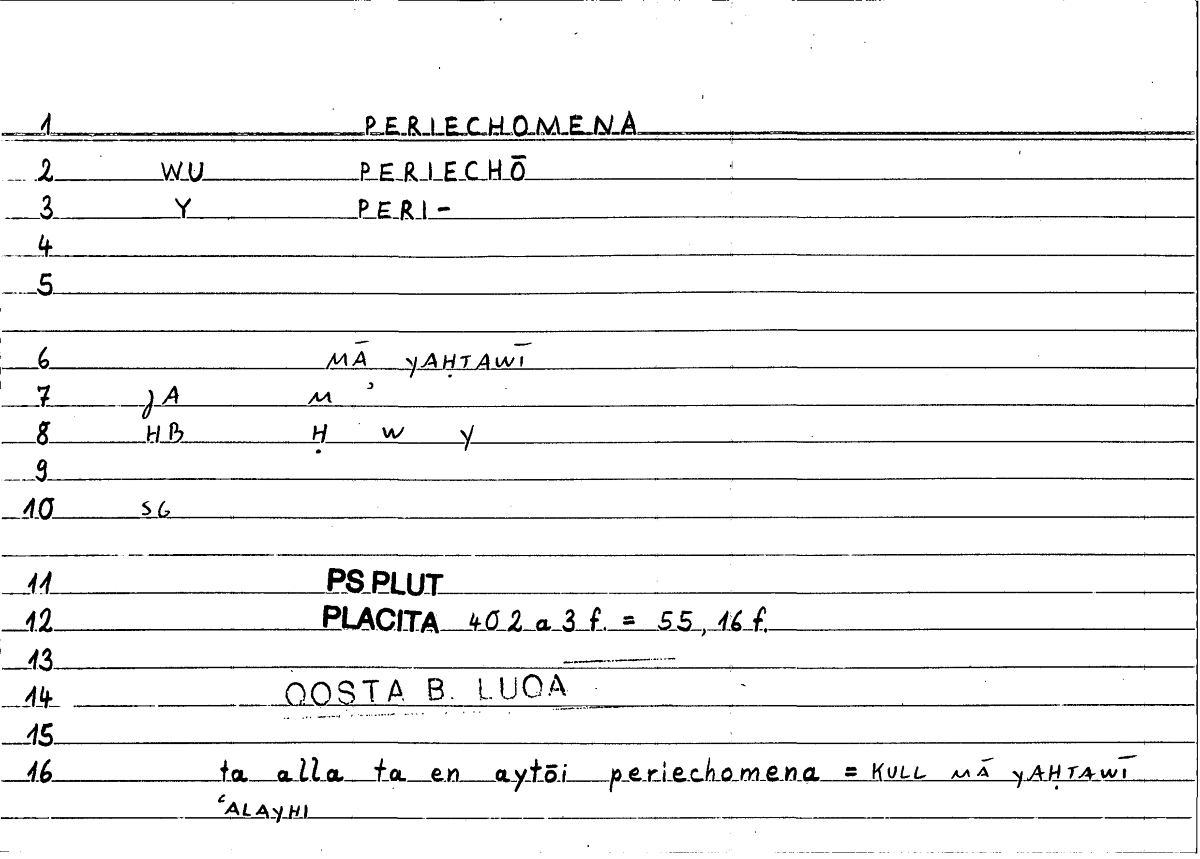 1 PERIECHOMENA
2 WU PERIECHŌ
3 Y PERI-
4
5
6 MĀ YAḤTAWĪ
7 JA M ʾ
8 HB Ḥ W Y
9
10 SG
11 PS PLUT
12 PLACITA 402 a 3 f. = 55, 16 f.
13
14 QOSTA B. LUQA
15
16 ta alla ta en aytōi periechomena = KULL MĀ YAḤTAWĪ
ʿALAYHI